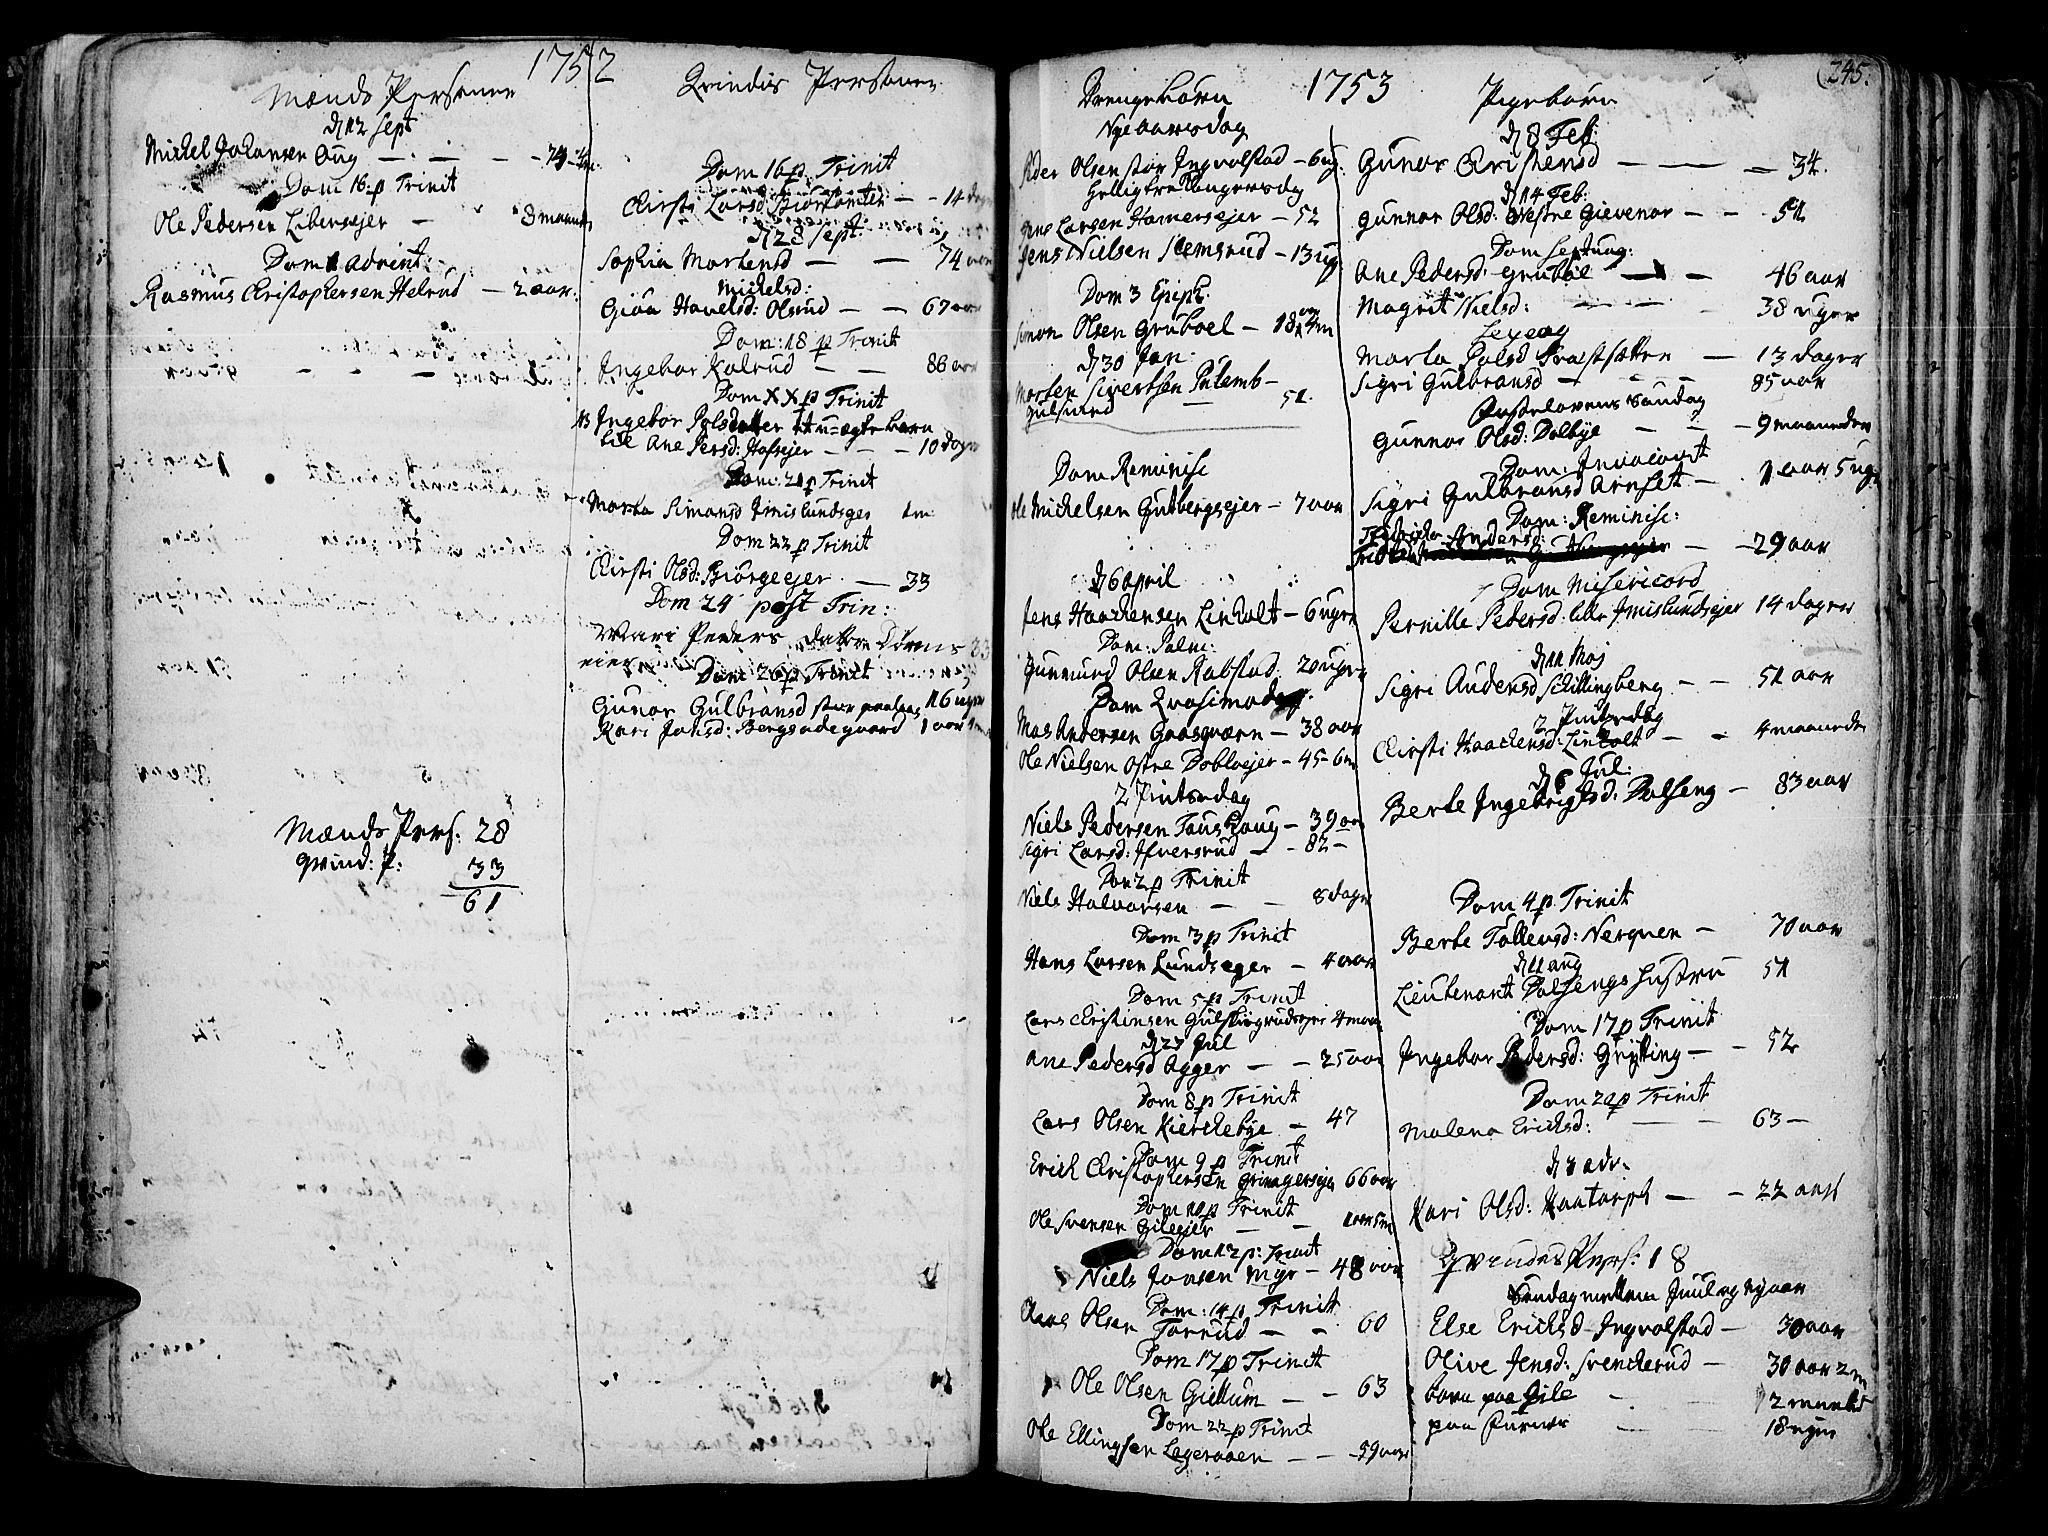 1752
Mænds Personer
d 12 Sept
Michel Johansen Aug — 74
Dom 16 p Trinit
Ole Pedersen Libersejer — 8 maaneder
Dom 1 advent:
Rasmus Christophersen Helrud — 2 aar.
Mænds Pers: 28
qvind: P: 33
61
Qvindis Personer
Dom 16 p Trinit
Cirsti Larsd — 14 dager
d 28 Sept:
Sophia Mortensd — — 74 aar
Michelsd:
Giøa Havelsd: Olsrud — — 67 aar
Dom: 18 p Trinit
Ingebor Kalrud — — 86 aar
Dom XX p Trinit
Ingebor Polsdatter et u=ægte barn
til Ane Persd: Hofsejer — — — 10 dager
Dom: 21 p Trinit
Marta Simonsd Smislundsger
Dom 22 p Trinit
Cirsti Olsd: Biørgeejer — 33
Dom 24 post Trin:
Mari Peders datter
eier
Dom 26 p Trinit
Gunor Gulbransd 16 uger
Kari Johsd: Bergsødegaard 1 aar
1753
245.
Drengebørn
Nye aarsdag
Peder Olsen stor Ingvolstad — 6 ug.
Hellig tre Kongersdag
Jens Larsen Hamersejer — 52
Jens Nielsen Slemsrud — 13 ug
Dom 3 Epiph.
Simon Olsen Gruboel — 18 aar 4 m
d 30 Jan:
Morten Sivertsen Pulemb —
Gulsmed — 51.
Dom Reminisc
Ole Michelsen Gulbergsejer — 7 aar
d 6 april
Jens Haachensen Linholt — 6 uger
Dom: Palm:
Gunmund Olsen Rabstad 20 uger
Dom Qvasimodog.
Mas Andersen Gaasqværn — 38 aar
Ole Nielsen Østre Dobloejer — 45 - 6 m
2 Pintsedag
Niels Pedersen Toushaug — 39 aar
Sigri Larsd: Ifversrud — - 82 —
Dom 2 p Trinit
Niels Halvorsen — — 8 dager
Dom 3 p Trinit
Hans Larsen Lundseger — 4 aar
Dom 5 p Trinit
Lars Christinsen 4 maan
d 27 Jul
Ane Pedersd Agger — — 25 aar
Dom 8 p Trinit
Lars Olsen Kierckebye — 47
Dom 9 p Trinit
Erich Christophersen 66 aar
Dom 10 p Trinit
Ole Svensen Gileejer — —
Dom 12 p: Trinit
Niels Jonsen Myr — 48 aar
Dom: 14 p Trinit
Olsen Torrud — — 60
Dom 17 p Trinit
Ole Olsen Giellum — — 63
Dom 22 p Trinit
Ole Ellingsen Lageraaen — — 59 aar
Pigebørn
d 8 Feb:
Gunor Cristensd — — — 34.
d 14 Feb:
Gunnor Olsd: Vestre Gievenor — — 51
Dom Septuag:
Ane Pedersd Gruboe — — 46 aar
Magrit Nielsd: — — 38 uger
Sexag
Marta Polsd Præstsætter — 13 dager
Sigri Gulbransd — — 85 aar
Fastelavens Søndag
Gunnor Olsd: Dalbye — — 9 maaneder
Dom: Invocavit
Sigri Gulbransd Arnset — 1 aar 5 ug
Dom: Reminisc:
Andersd: — 29 aar
Dom Misericord
Pernille Pedersd: lille Smislundsejer 14 dager
d 11 Maj
Sigri Andersd Schillingberg — — 51 aar
2 Pintsedag
Cirsti Haachensd: Linholt — — 4 maaneder
d 6 Jul:
Berte Ingebrigtsd: Dalseng — 83 aar
Dom 4 p Trinit
Berte Tollensd: Nerqven — 70 aar
d 11 aug
Lieutenant Dalsengs Hustru 51
Dom 17 p Trinit
Ingebor Pedersd: Grytting — — 52
Dom 20 p Trinit
Malena Ericksd: — — 63 —
d 3 adv.
Kari Olsd: Kaatorph — — 22 aar
Qvindes Pers: 18
Søndag mellem Juul og Nyaar
Else Ericksd Ingvolstad — 30 aar
Olive Jensd: Svenckerud — 30 aar 2 m
barn paa Gile — 12
paa Furnes — 18 uger